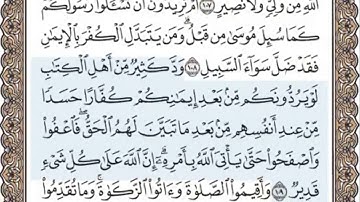 ٱللَّهِ مِن وَلِيٍّ وَلَا نَصِيرٍ ١٠٧ أَمْ تُرِيدُونَ أَن تَسْـَٔلُوا۟ رَسُولَكُمْ
كَمَا سُئِلَ مُوسَىٰ مِن قَبْلُ ۗ وَمَن يَتَبَدَّلِ ٱلْكُفْرَ بِٱلْإِيمَٰنِ
فَقَدْ ضَلَّ سَوَآءَ ٱلسَّبِيلِ ١٠٨ وَدَّ كَثِيرٌ مِّنْ أَهْلِ ٱلْكِتَٰبِ
لَوْ يَرُدُّونَكُم مِّنۢ بَعْدِ إِيمَٰنِكُمْ كُفَّارًا حَسَدًا
مِّنْ عِندِ أَنفُسِهِم مِّنۢ بَعْدِ مَا تَبَيَّنَ لَهُمُ ٱلْحَقُّ ۖ فَٱعْفُوا۟
وَٱصْفَحُوا۟ حَتَّىٰ يَأْتِىَ ٱللَّهُ بِأَمْرِهِۦٓ ۗ إِنَّ ٱللَّهَ عَلَىٰ كُلِّ شَىْءٍ
قَدِيرٌ ١٠٩ وَأَقِيمُوا۟ ٱلصَّلَوٰةَ وَءَاتُوا۟ ٱلزَّكَوٰةَ ۚ وَمَا تُقَدِّمُوا۟